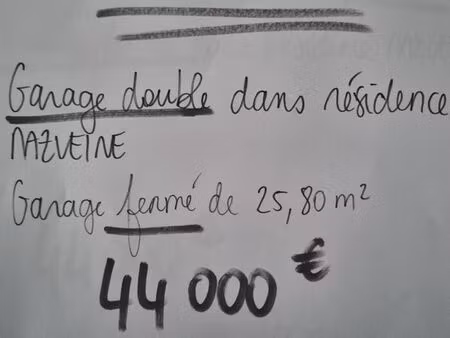 Garage double dans résidence
MAZVEINE
Garage fermé de 25,80 m²
44 000 €